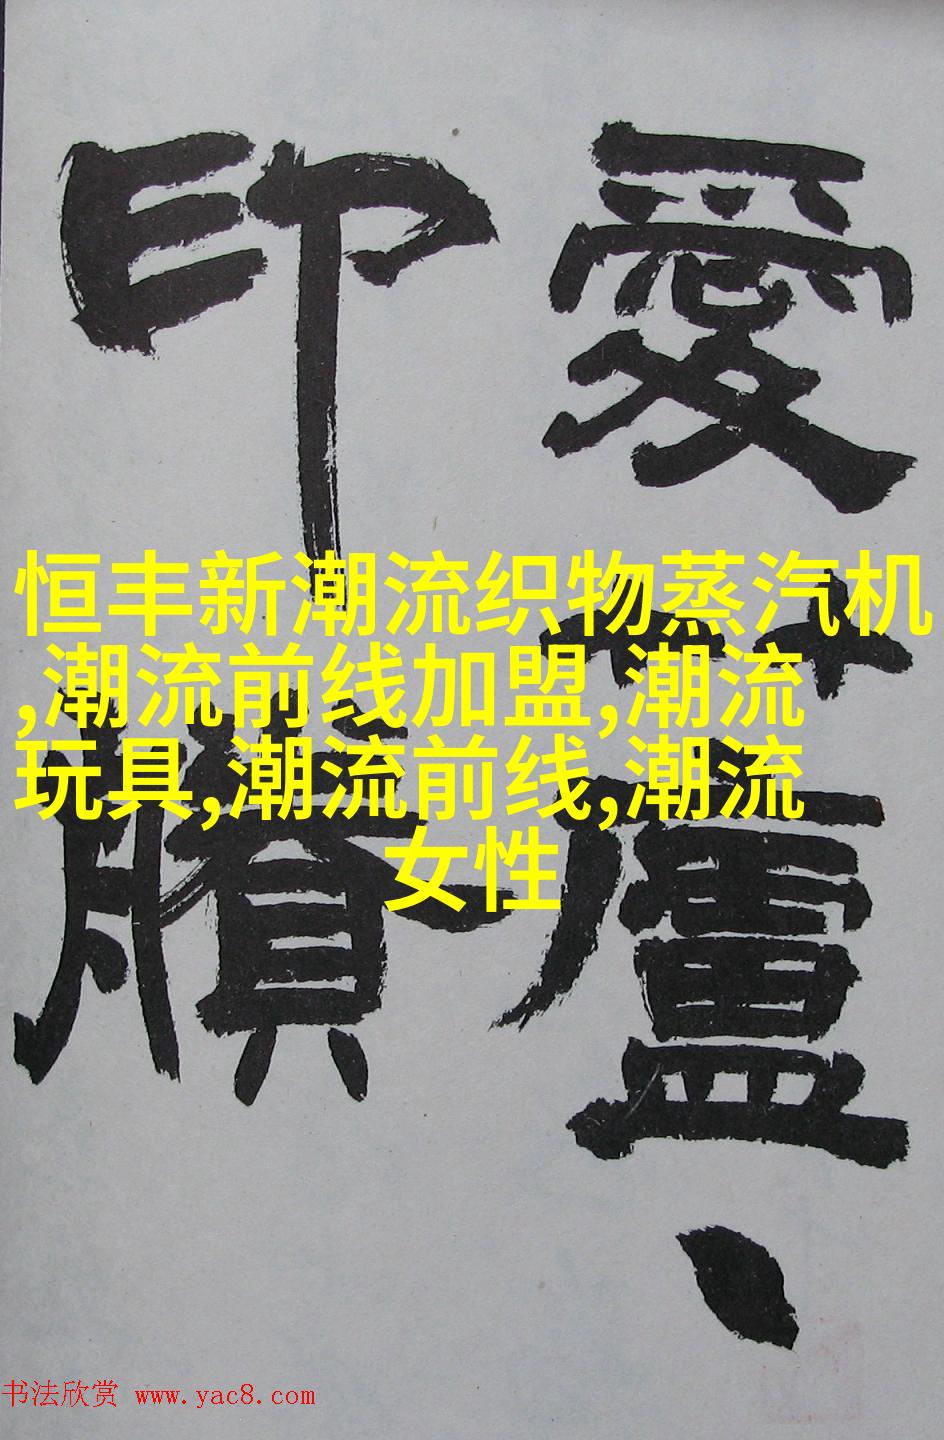 愛蘆、
印賸
恒丰新潮流织物蒸汽机
,潮流前线加盟,潮流
玩具,潮流前线,潮流
女性
书法欣赏 www.yac8.com